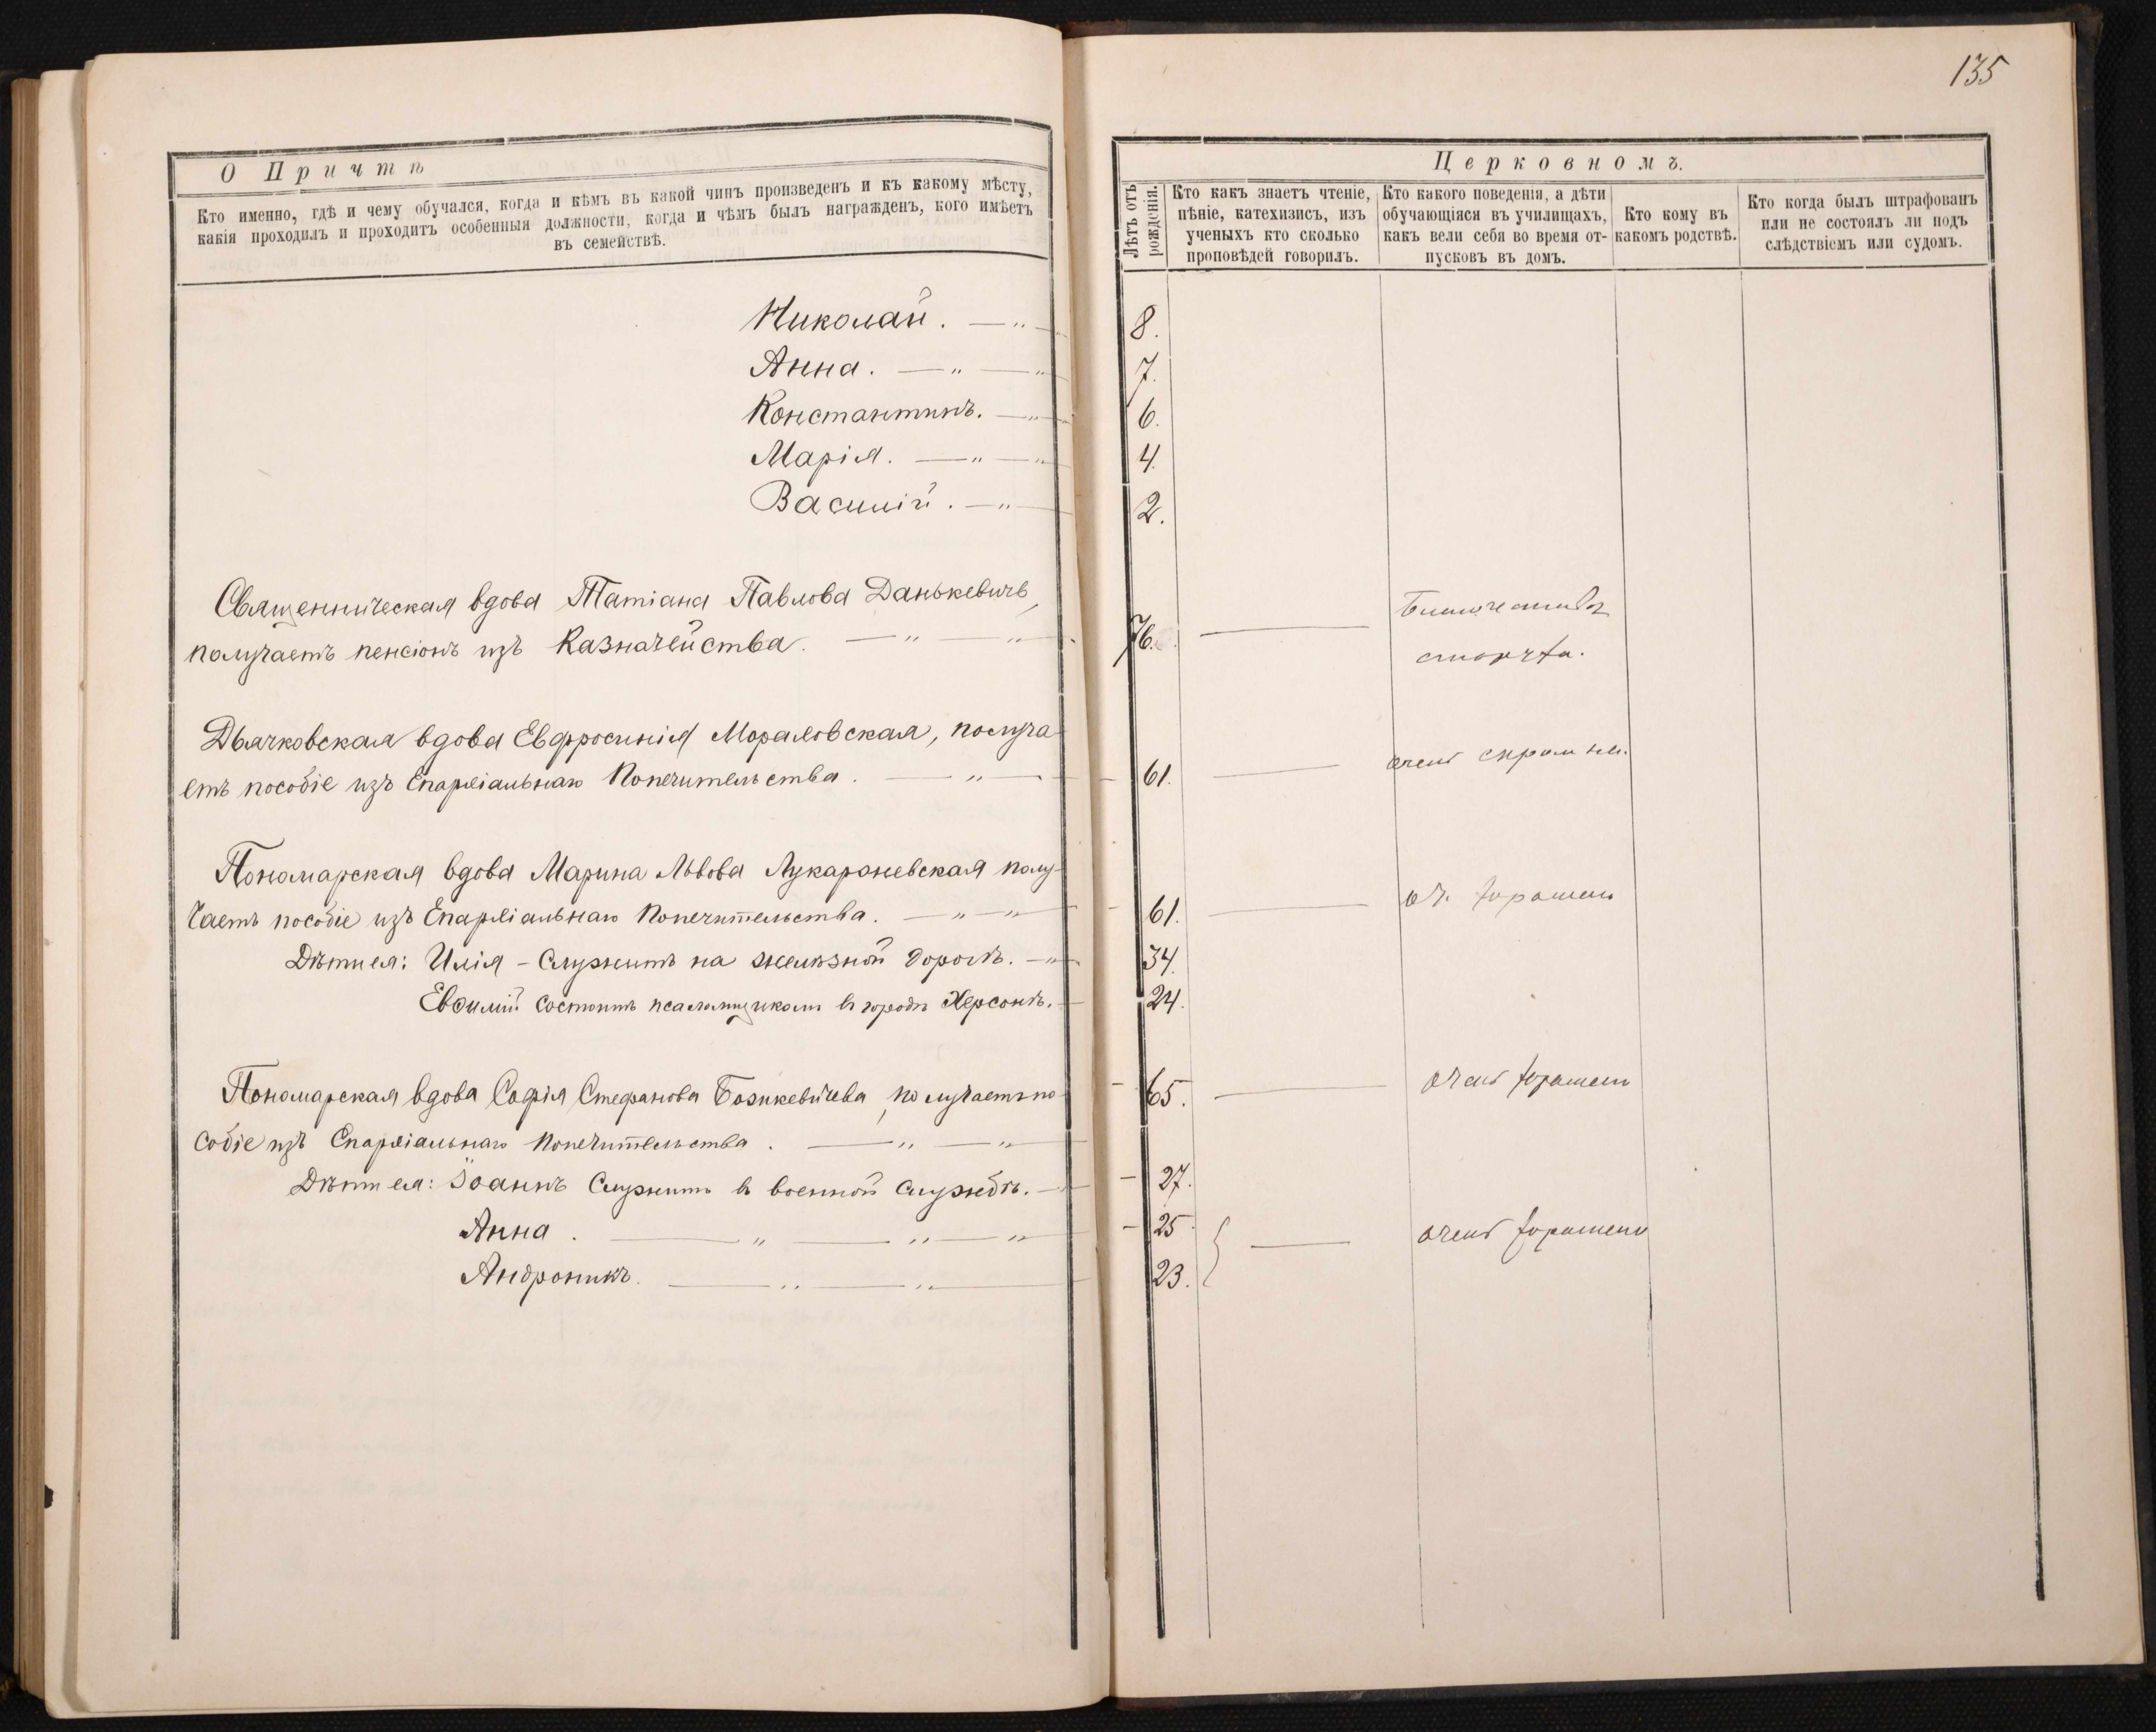 О Причтѣ
Кто именно, гдѣ и чему обучался, когда и кѣмъ въ какой чинъ произведенъ и къ какому мѣсту,
какія проходилъ и проходитъ особенныя должности, когда и чѣмъ былъ награжденъ, кого имѣетъ
въ семействѣ.
Николай. — „ —
Анна. — „ — „
Константинъ. — „
Марія. — „ — „
Василій. — „ —
Священническая вдова Татіана Павлова Данькевичъ,
получаетъ пенсіонъ изъ Казначейства. — „ — „
Дьячковская вдова Евфросинія Мораловская, получа-
етъ пособіе изъ Епархіальнаго Попечительства. — „ —
Пономарская вдова Марина Львова Лукарзневская полу-
чаетъ пособіе изъ Епархіальнаго Попечительства. — „ — „
Дѣти ея: Илія – служитъ на желѣзной дорогѣ. — „
Евѳимій состоитъ псаломщикомъ въ городѣ Херсонѣ. —
Пономарская вдова Софія Стефанова Базикевичева, получаетъ по-
собіе изъ Епархіальнаго Попечительства. — „ — „
Дѣти ея: Іоаннъ служитъ въ военной службѣ. —
Анна. — „ — „ — „
Андроникъ. — „ — „ —
135
Церковномъ.
Лѣтъ отъ
рожденія.
Кто какъ знаетъ чтеніе,
пѣніе, катехизисъ, изъ
ученыхъ кто сколько
проповѣдей говорилъ.
Кто какого поведенія, а дѣти
обучающіяся въ училищахъ,
какъ вели себя во время от-
пусковъ въ домъ.
Кто кому въ
какомъ родствѣ.
Кто когда былъ штрафованъ
или не состоялъ ли подъ
слѣдствіемъ или судомъ.
8.
7.
6.
4.
2.
76. —
61. — очень скромна.
61. — оч. хорошаго
34.
24.
65. — очень хорошаго
27.
25
23. } — очень хорошаго